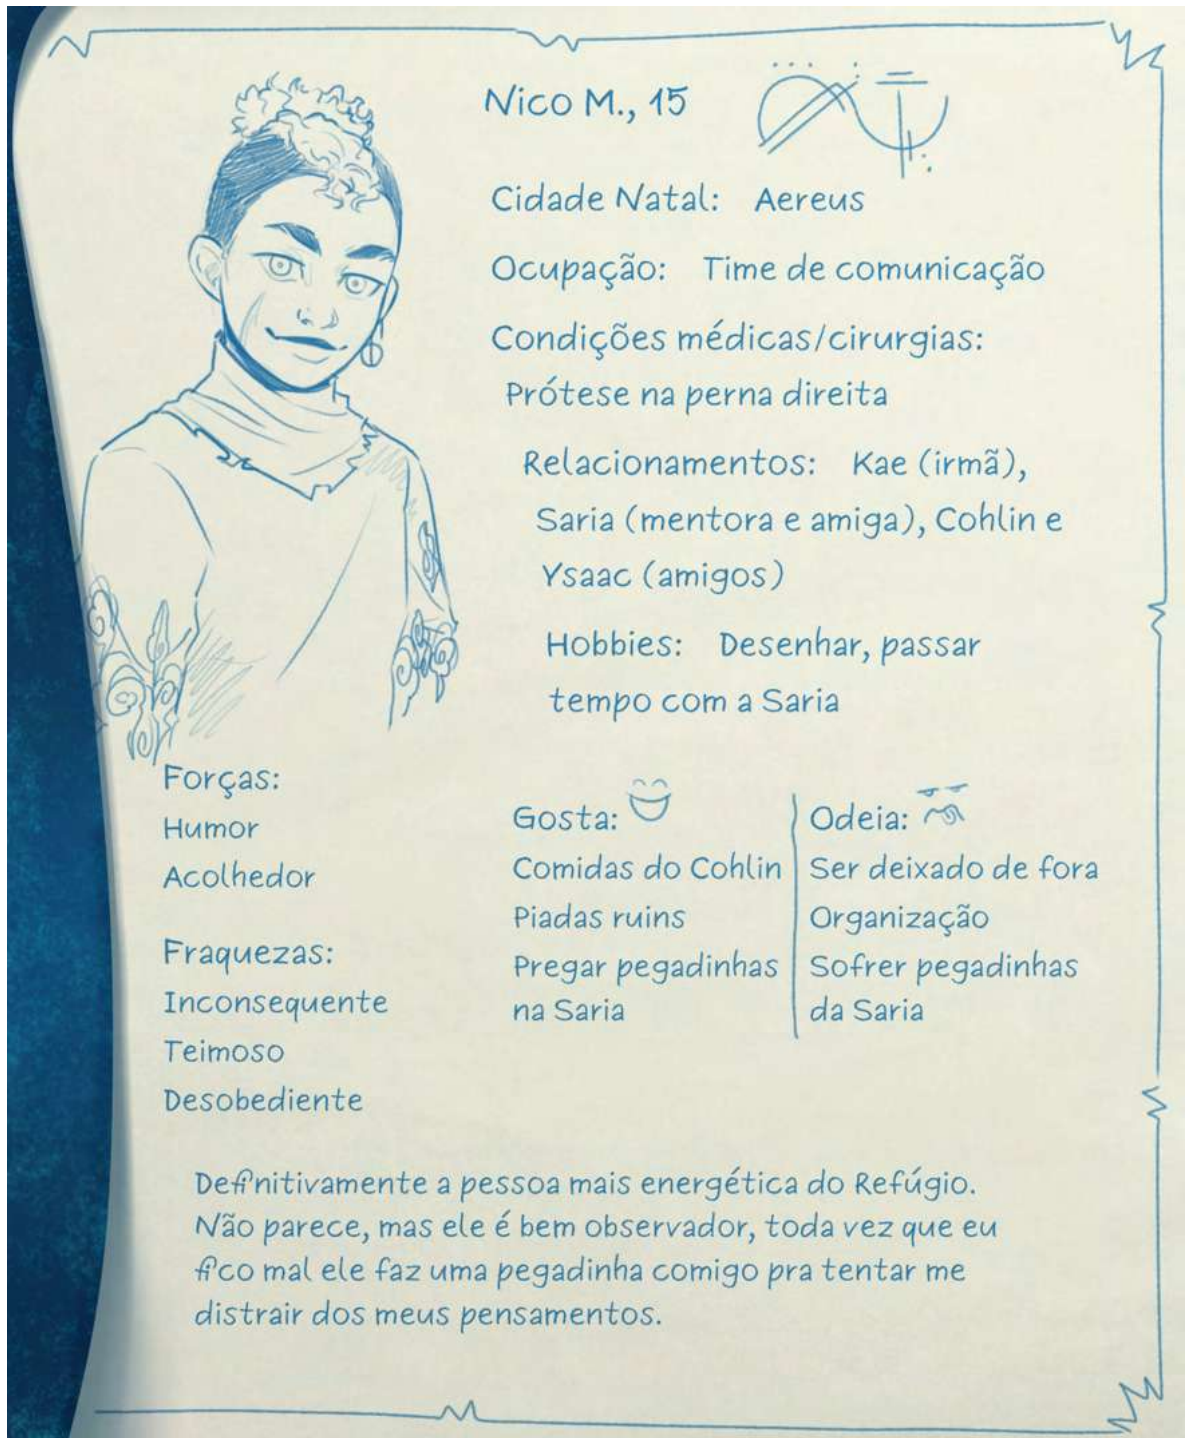 Nico M., 15
Cidade Natal: Aereus
Ocupação: Time de comunicação
Condições médicas/cirurgias:
Prótese na perna direita
Relacionamentos: Kae (irmã),
Saria (mentora e amiga), Cohlin e
Ysaac (amigos)
Hobbies: Desenhar, passar
tempo com a Saria
Forças:
Humor
Acolhedor
Fraquezas:
Inconsequente
Teimoso
Desobediente
Gosta:
Comidas do Cohlin
Piadas ruins
Pregar pegadinhas
na Saria
Odeia:
Ser deixado de fora
Organização
Sofrer pegadinhas
da Saria
Definitivamente a pessoa mais energética do Refúgio.
Não parece, mas ele é bem observador, toda vez que eu
fico mal ele faz uma pegadinha comigo pra tentar me
distrair dos meus pensamentos.